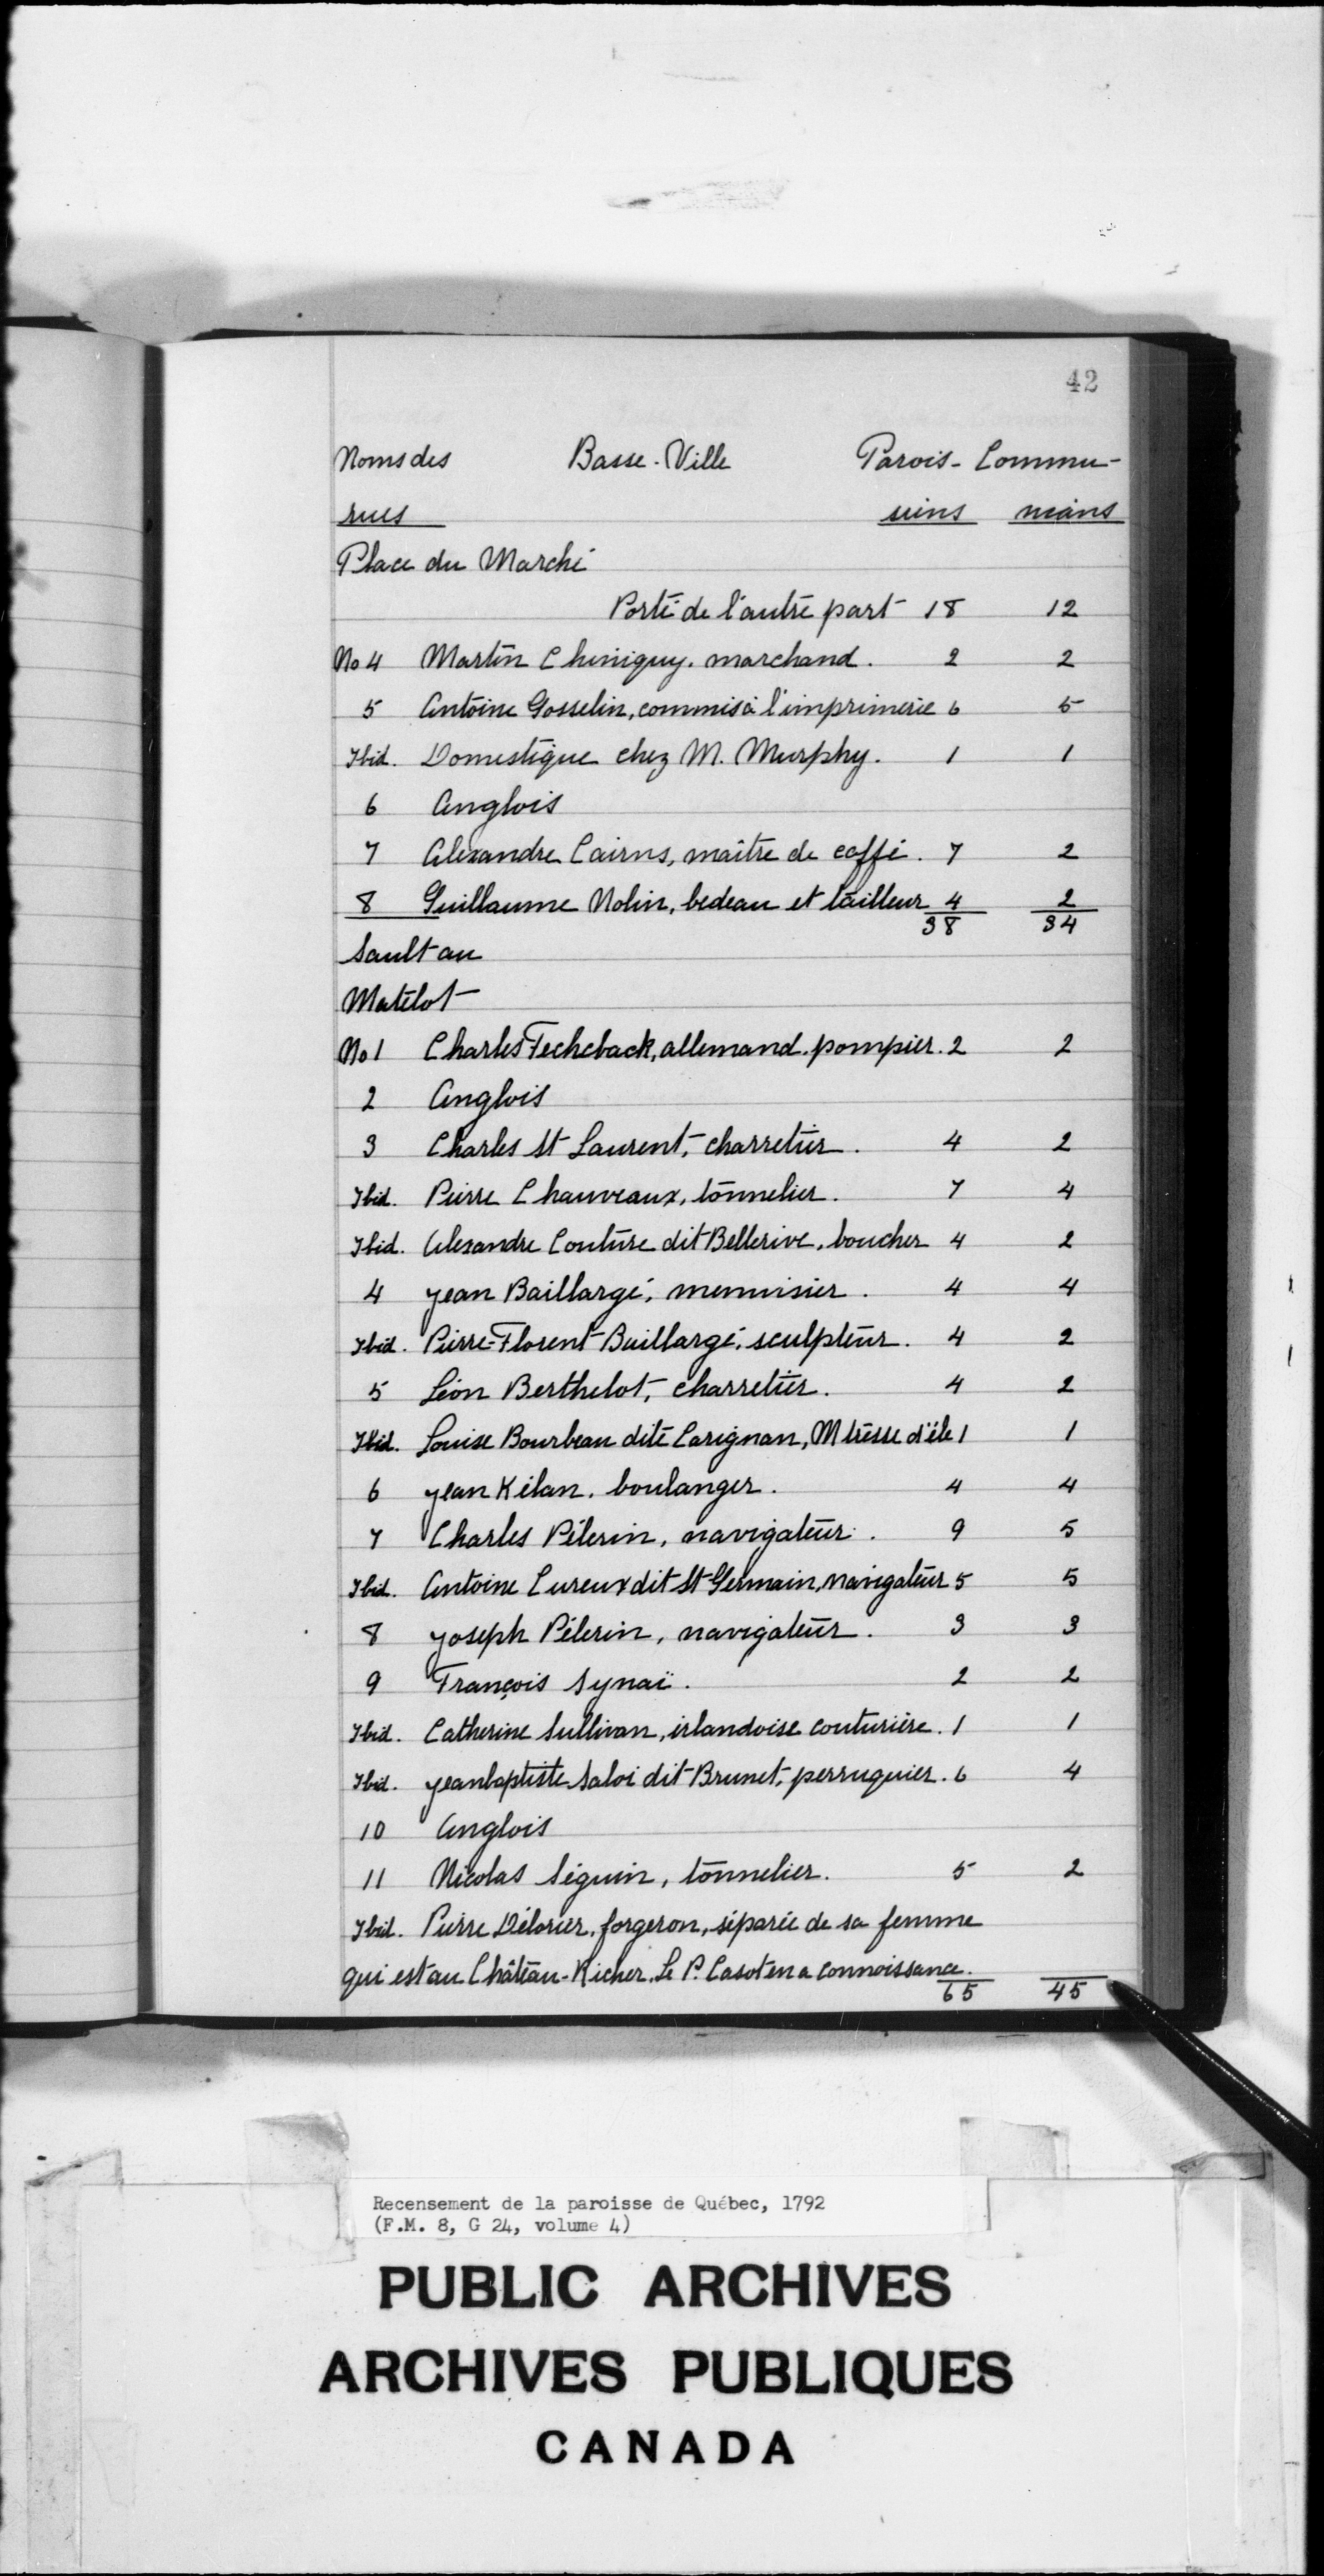 42
Noms des Basse-Ville Parois- Commu-
rues siens nians
Place du Marché
Porté de l'autre part 18 12
No 4 Martin Chiniquy, marchand. 2 2
5 Antoine Gosselin, commis à l'imprimerie 6 5
Ibid. Domestique chez M. Murphy. 1 1
6 Anglois
7 Alexandre Cairns, maître de caffé. 7 2
8 Guillaume Nolin, bedeau et tailleur 4 2
38 34
Sault au
Matelot
No 1 Charles Fecheback, allemand, pompier. 2 2
2 Anglois
3 Charles St Laurent, charretier. 4 2
Ibid. Pierre Chauveaux, tonnelier. 7 4
Ibid. Alexandre Couture dit Bellerive, boucher 4 2
4 Jean Baillargé, menuisier. 4 4
Ibid. Pierre-Florent Baillargé, sculpteur. 4 2
5 Léon Berthelot, charretier. 4 2
Ibid. Louise Bourbeau dite Carignan, Mtresse d'éle 1 1
6 Jean Kélan, boulanger. 4 4
7 Charles Pélerin, navigateur. 9 5
Ibid. Antoine Lureux dit St Germain, navigateur 5 5
8 Joseph Pélerin, navigateur. 3 3
9 François Synaï. 2 2
Ibid. Catherine Sullivan, irlandoise couturière. 1 1
Ibid. Jeanbaptiste Saloi dit Brunet, perruquier. 6 4
10 Anglois
11 Nicolas Séguin, tonnelier. 5 2
Ibid. Pierre Délorier, forgeron, séparée de sa femme
qui est au Château-Richer. Le P. Casot en a connoissance.
65 45
Recensement de la paroisse de Québec, 1792
(F.M. 8, G 24, volume 4)
PUBLIC ARCHIVES
ARCHIVES PUBLIQUES
CANADA